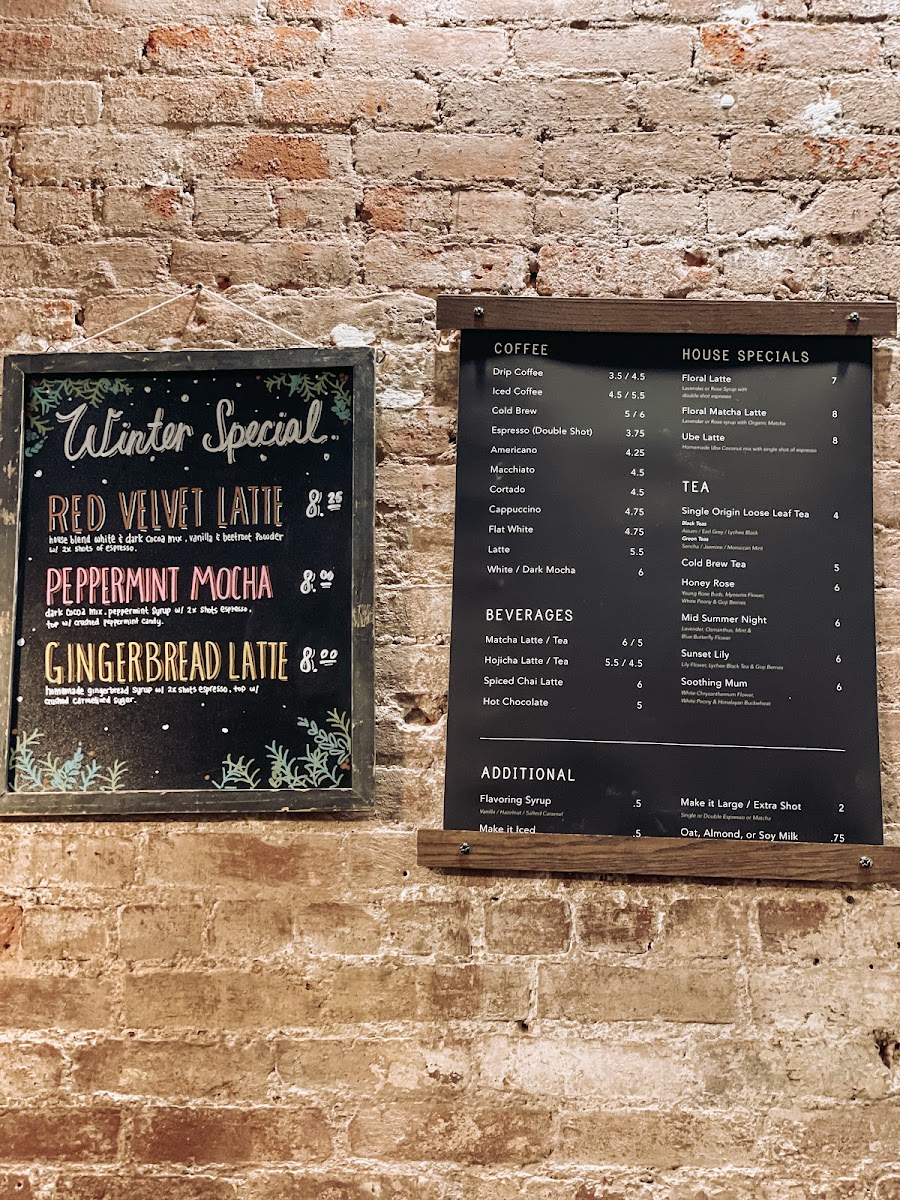 Winter Special
RED VELVET LATTE 8.25
house blend white & dark cocoa mix, vanilla & beetroot powder
w/ 2x shots of espresso.
PEPPERMINT MOCHA 8.00
dark cocoa mix, peppermint syrup w/ 2x shots espresso,
top w/ crushed peppermint candy.
GINGERBREAD LATTE 8.00
homemade gingerbread syrup w/ 2x shots espresso, top w/
crushed carmelized sugar.
COFFEE
Drip Coffee 3.5 / 4.5
Iced Coffee 4.5 / 5.5
Cold Brew 5 / 6
Espresso (Double Shot) 3.75
Americano 4.25
Macchiato 4.5
Cortado 4.5
Cappuccino 4.75
Flat White 4.75
Latte 5.5
White / Dark Mocha 6
BEVERAGES
Matcha Latte / Tea 6 / 5
Hojicha Latte / Tea 5.5 / 4.5
Spiced Chai Latte 6
Hot Chocolate 5
HOUSE SPECIALS
Floral Latte 7
Lavender or Rose Syrup with
double shot espresso
Floral Matcha Latte 8
Lavender or Rose syrup with Organic Matcha
Ube Latte 8
Homemade Ube Coconut mix with single shot of espresso
TEA
Single Origin Loose Leaf Tea 4
Black Teas
Assam / Earl Grey / Lychee Black
Green Teas
Sencha / Jasmine / Moroccan Mint
Cold Brew Tea 5
Honey Rose 6
Young Rose Buds, Myosotis Flower,
White Peony & Goji Berries
Mid Summer Night 6
Lavender, Osmanthus, Mint &
Blue Butterfly Flower
Sunset Lily 6
Lily Flower, Lychee Black Tea & Goji Berries
Soothing Mum 6
White Chrysanthemum Flower,
White Peony & Himalayan Buckwheat
ADDITIONAL
Flavoring Syrup .5
Vanilla / Hazelnut / Salted Caramel
Make it Iced .5
Make it Large / Extra Shot 2
Single or Double Espresso or Matcha
Oat, Almond, or Soy Milk .75